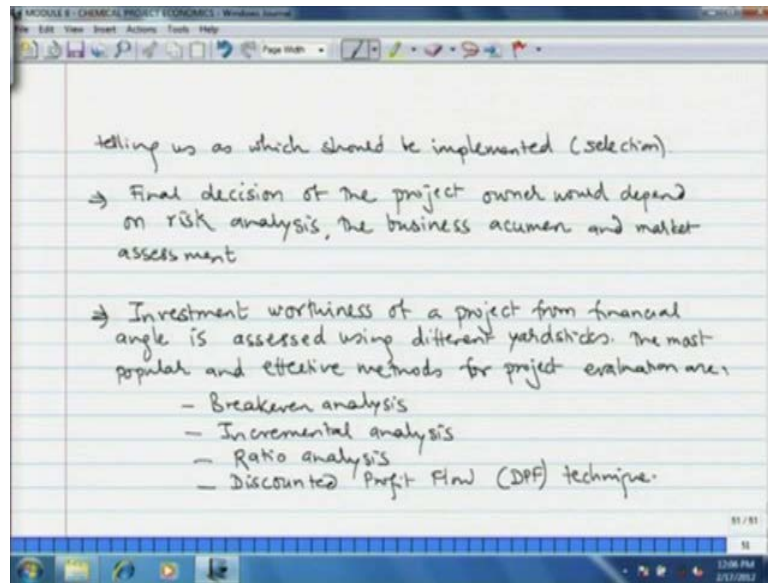 MODULE 6 - CHEMICAL PROJECT ECONOMICS - Windows Journal
File Edit View Insert Actions Tools Help
Page Width
telling us as which should be implemented (selection)
⇒ Final decision of the project owner would depend
on risk analysis, the business acumen and market
assessment
⇒ Investment worthiness of a project from financial
angle is assessed using different yardsticks. The most
popular and effective methods for project evaluation are,
– Breakeven analysis
– Incremental analysis
– Ratio analysis
– Discounted Profit Flow (DPF) technique.
51 / 51
51
12:06 PM
2/17/2012